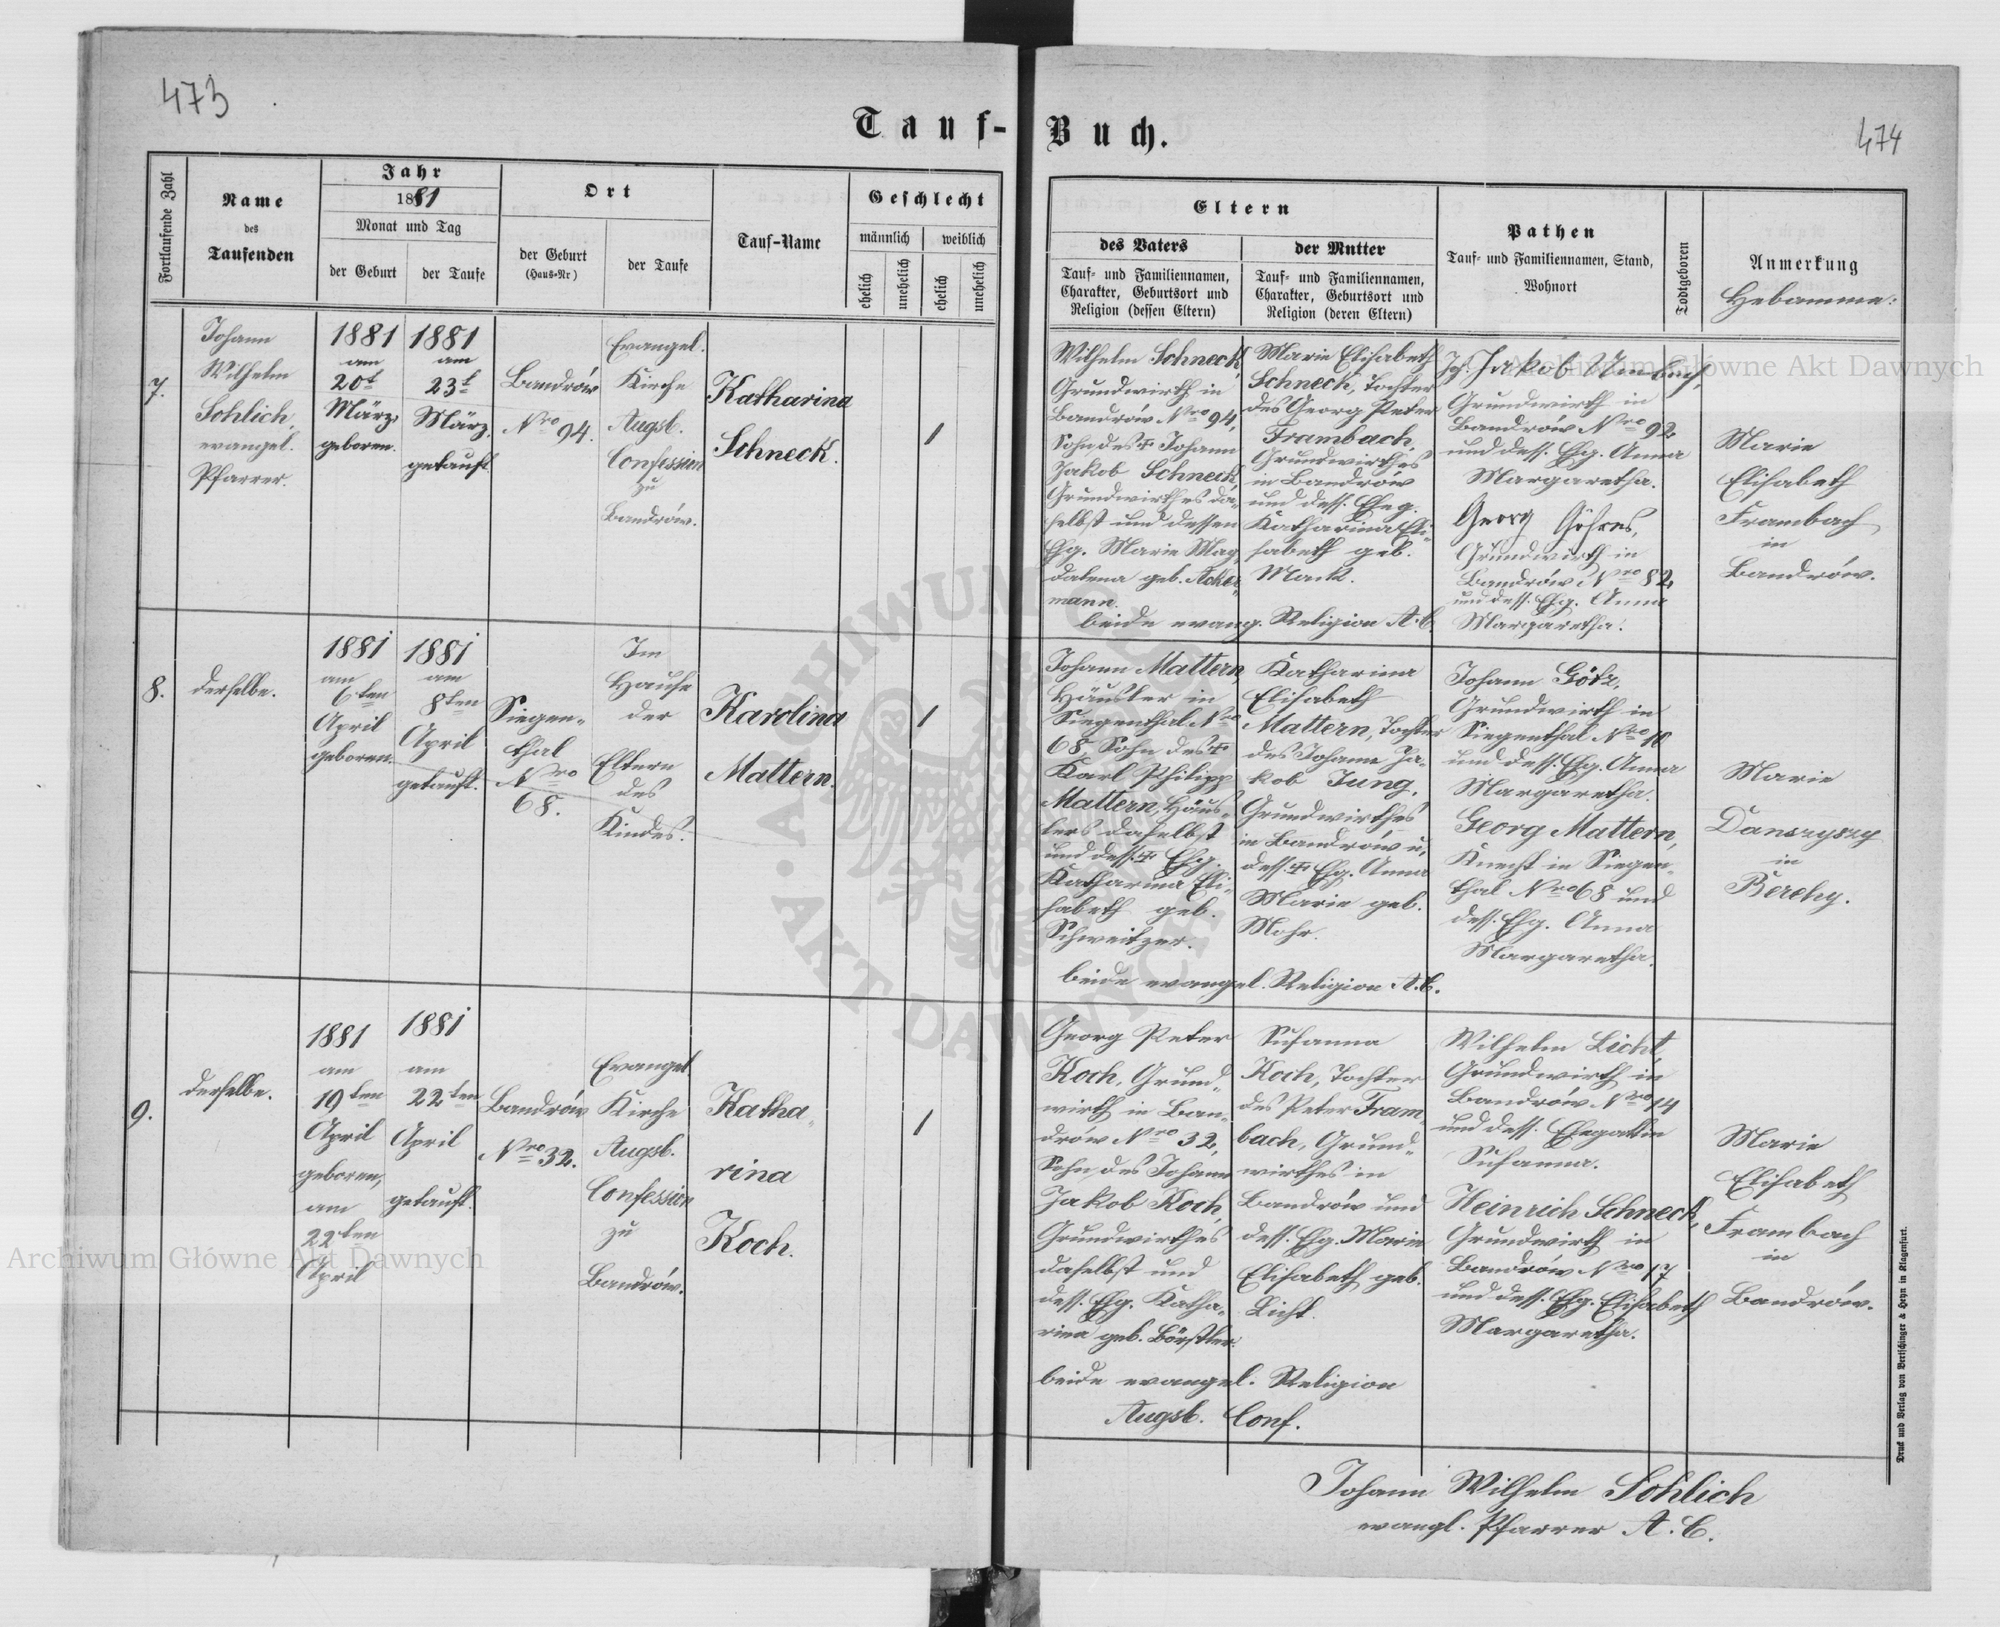 473
Tauf-Buch.
474
Fortlaufende Zahl
Name
des
Taufenden
Jahr
1881
Monat und Tag
der Geburt
der Taufe
Ort
der Geburt
(Haus-Nr)
der Taufe
Tauf-Name
Geschlecht
männlich
weiblich
ehelich
unehelich
ehelich
unehelich
Eltern
des Vaters
Tauf- und Familiennamen,
Charakter, Geburtsort und
Religion (dessen Eltern)
der Mutter
Tauf- und Familiennamen,
Charakter, Geburtsort und
Religion (deren Eltern)
Pathen
Tauf- und Familiennamen, Stand,
Wohnort
Todtgeboren
Anmerkung
Hebamme:
7.
Johann
Wilhelm
Sohlich,
evangel.
Pfarrer.
1881
am
20t
März,
geboren.
1881
am
23t
März.
getauft.
Bandrów
Nro 94.
Evangel.
Kirche
Augsb.
Confession
zu
Bandrów.
Katharina
Schneck.
1
Wilhelm Schneck,
Grundwirth in
Bandrów Nro 94,
Sohn des † Johann
Jakob Schneck,
Grundwirthes da-
selbst und dessen
Ehg. Marie Mag
dalena geb. Acker-
mann.
Marie Elisabeth
Schneck, Tochter
des Georg Peter
Frambach,
Grundwirthes
in Bandrów
und dess. Eheg.
Katharina Eli-
sabeth geb.
Mack.
beide evang. Religion A. C.
Jakob Umbach,
Grundwirth in
Bandrów Nro 92
und dess. Ehg. Anna
Margaretha.
Georg Göhres,
Grundwirth in
Bandrów Nro 82
und dess. Ehg. Anna
Margaretha.
Marie
Elisabeth
Frambach
in
Bandrów.
8.
derselbe.
1881
am
6ten
April
geboren.
1881
am
8ten
April
getauft.
Siegen-
thal
Nro
68.
Im
Hause
der
Eltern
des
Kindes.
Karolina
Mattern.
1
Johann Mattern
Häusler in
Siegenthal Nro
68, Sohn des †
Karl Philipp
Mattern, Häus-
lers daselbst
und dess. † Ehg.
Katharina Eli-
sabeth geb.
Schweitzer.
Katharina
Elisabeth
Mattern, Tochter
des Johann Ja-
kob Jung,
Grundwirthes
in Bandrów u.
dess. † Ehg. Anna
Marie geb.
Mohr.
beide evangel. Religion A. C.
Johann Götz,
Grundwirth in
Siegenthal Nro
und dess. Ehg. Anna
Margaretha.
Georg Mattern,
Knecht in Siegen-
thal Nro 68 und
dess. Ehg. Anna
Margaretha.
Marie
in
Berehy.
9.
derselbe.
1881
am
19ten
April
geboren,
am
22ten
April
1881
am
22ten
April
getauft.
Bandrów
Nro 32.
Evangel.
Kirche
Augsb.
Confession
zu
Bandrów.
Katha-
rina
Koch.
1
Georg Peter
Koch, Grund-
wirth in Ban-
drów Nro 32,
Sohn des Johann
Jakob Koch,
Grundwirthes
daselbst und
dess. Ehg. Katha-
rina geb. Börstler.
Susanna
Koch, Tochter
des Peter Fram-
bach, Grund-
wirthes in
Bandrów und
dess. Ehg. Marie
Elisabeth geb.
Licht.
beide evangel. Religion
Augsb. Conf.
Wilhelm Licht,
Grundwirth in
Bandrów Nro 14
und dess. Ehegattin
Susanna.
Heinrich Schneck,
Grundwirth in
Bandrów Nro 17
und dess. Ehg. Elisabeth
Margaretha.
Marie
Elisabeth
Frambach
in
Bandrów.
Johann Wilhelm Sohlich
evangl. Pfarrer A. C.
Druck und Verlag von Bertschinger & Heyn in Klagenfurt.
Archiwum Główne Akt Dawnych
Archiwum Główne Akt Dawnych
ARCHIWUM GŁÓWNE · AKT DAWNYCH